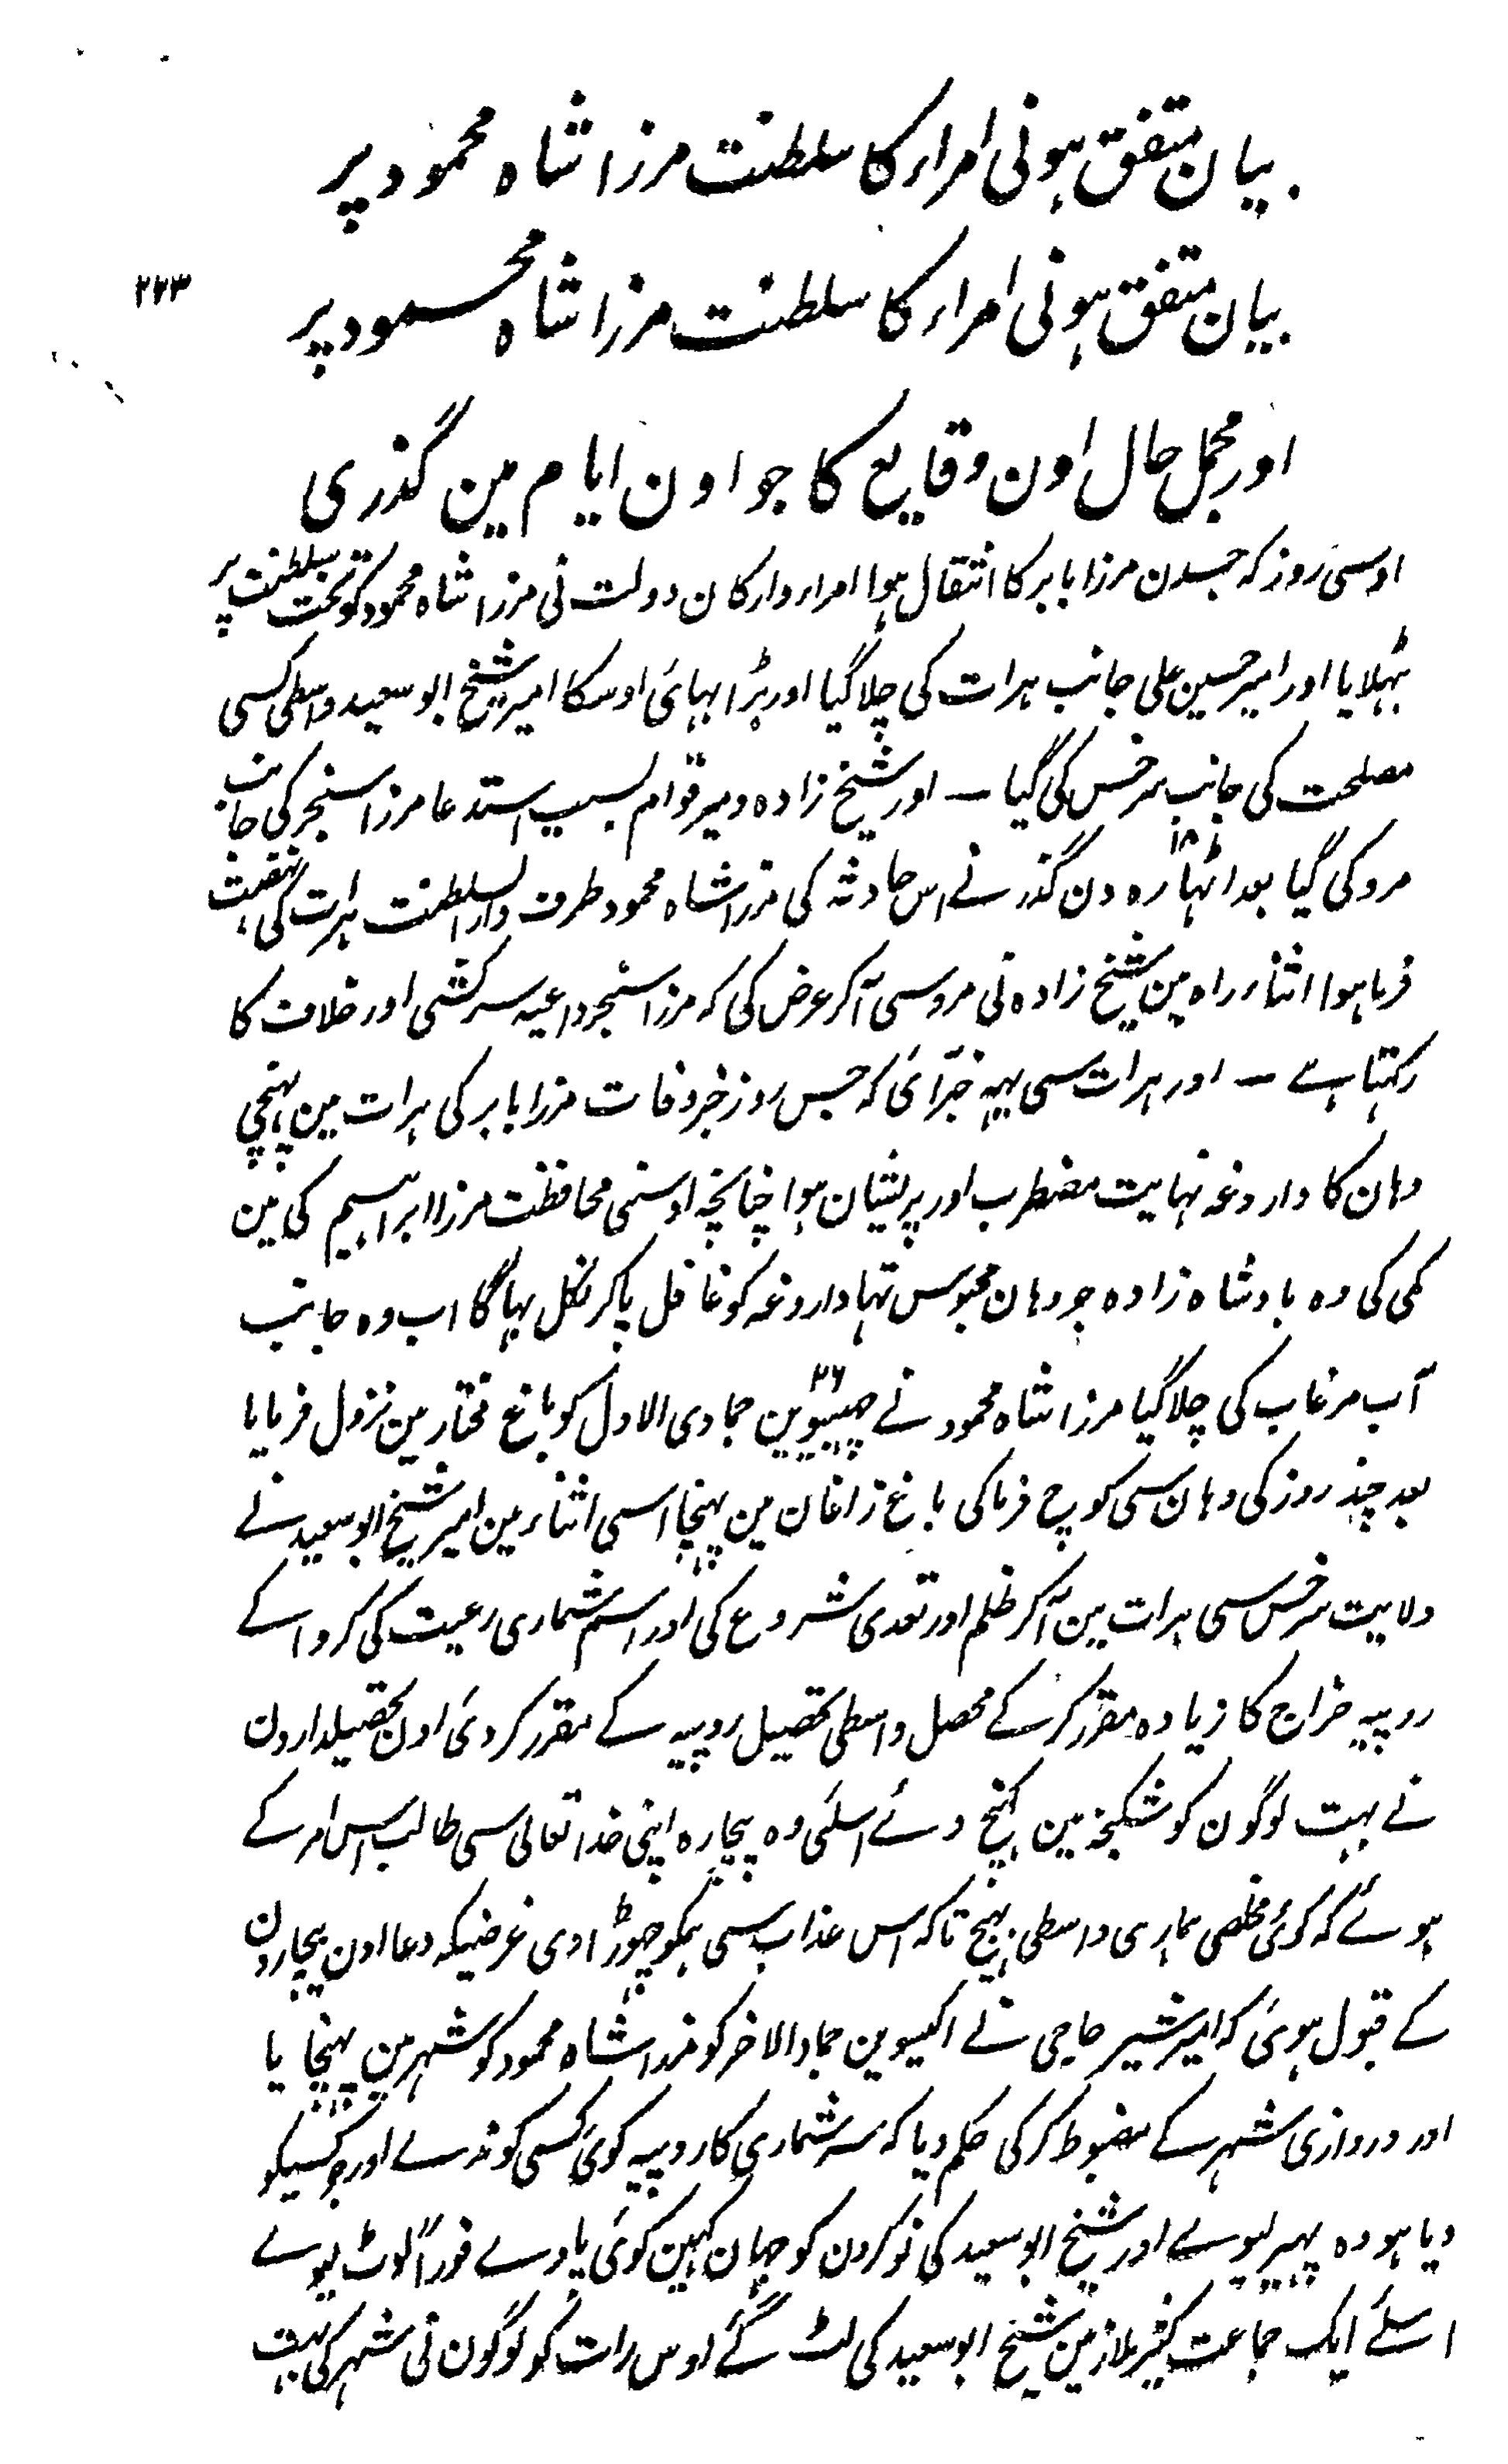 بیان متفق ہونی امراء کا سلطنت مرزا شاہ محمود پر
۲۲۳
بیان متفق ہونی امراء کا سلطنت مرزا شاہ محمود پر
اور مجمل حال اون وقایع کا جو اون ایام مین گذری
اوسی روز کہ جسدن مرزا بابر کا انتقال ہوا امراء و ارکان دولت نی مرزا شاہ محمود کو تخت سلطنت پر
بٹہلایا اور امیر حسین علی جانب ہرات کی چلا گیا اور بڑا بہائی اوسکا امیر شیخ ابو سعید واسطی کسی
مصلحت کی جانب سرخس کی گیا ــ اور شیخ زادہ و میر قوام بسبب استدعا مرزا سنجر کی جانب
مرو کی گیا بعد اٹہارہ ۱۸ دن گذرنے اس حادثہ کی مرزا شاہ محمود طرف دار السلطنت ہرات کی نہضت
فرما ہوا اثناء راہ مین شیخ زادہ نی مرو سی آکر عرض کی کہ مرزا سنجر داعیہ سرکشی اور خلاف کا
رکہتا ہے ــ اور ہرات سی یہہ خبر آئی کہ جس روز خبر وفات مرزا بابر کی ہرات مین پہنچی
وہان کا داروغہ نہایت مضطرب اور پریشان ہوا چنانچہ اوسنی محافظت مرزا ابراہیم کی مین
کمی کی وہ بادشاہ زادہ جو وہان محبوس تہا داروغہ کو غافل پاکر نکل بہاگا اب وہ جانب
آب مرغاب کی چلا گیا مرزا شاہ محمود نے چہبیسوین ۲۶ جمادی الاول کو باغ مختار مین نزول فرمایا
بعد چند روز کی وہان سی کوچ فرماکی باغ زاغان مین پہنچا اسی اثناء مین امیر شیخ ابو سعید نے
ولایت سرخس سی ہرات مین آکر ظلم اور تعدی شروع کی اور اسم شماری رعیت کی کروا کے
روپیہ خراج کا زیادہ مقرر کر کے محصل واسطی تحصیل روپیہ کے مقرر کر دئی اون تحصیلدارون
نے بہت لوگون کو شکنجہ مین کہنچ دئے اسلئی وہ بیچارہ اپنی خدا تعالی سی طالب اس امر کے
ہوئے کہ کوئی مخلصی ہماری واسطی بہیج تاکہ اس عذاب سی ہمکو چہوڑاوی غرضیکہ دعا اون بیچارون
کے قبول ہوئی کہ امیر شیر حاجی نے اکیسوین جماد الاخر کو مرزا شاہ محمود کو شہر مین پہنچایا
اور دروازی شہر کے مضبوط کر کی حکم دیا کہ سر شماری کا روپیہ کوئی کسی کو ندے اور جو کسیکو
دیا ہو وہ پہیر لیوے اور شیخ ابو سعید کی نوکرون کو جہان کہین کوئی پاوے فوراً لوٹ لیوے
اسلئے ایک جماعت کثیر ملازمین شیخ ابو سعید کی لٹ گئے اوس رات کو لوگون نی شہر کی بہت